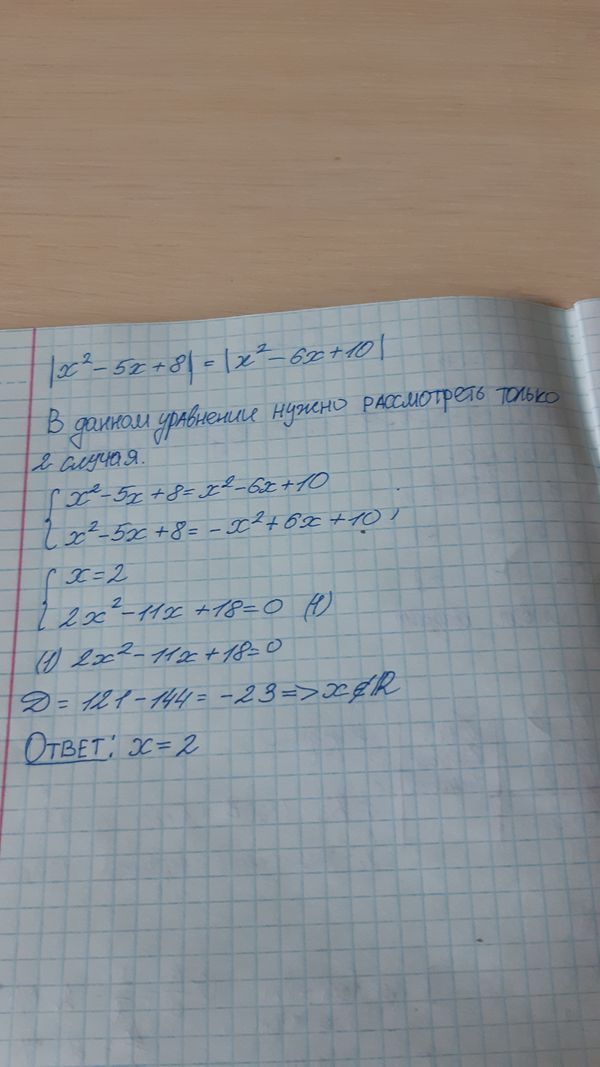 |x² - 5x + 8| = |x² - 6x + 10|
В данном уравнении нужно рассмотреть только
2 случая.
{ x² - 5x + 8 = x² - 6x + 10
{ x² - 5x + 8 = - x² + 6x + 10 ;
{ x = 2
{ 2x² - 11x + 18 = 0 (1)
(1) 2x² - 11x + 18 = 0
D = 121 - 144 = -23 => x ∉ R
Ответ: x = 2